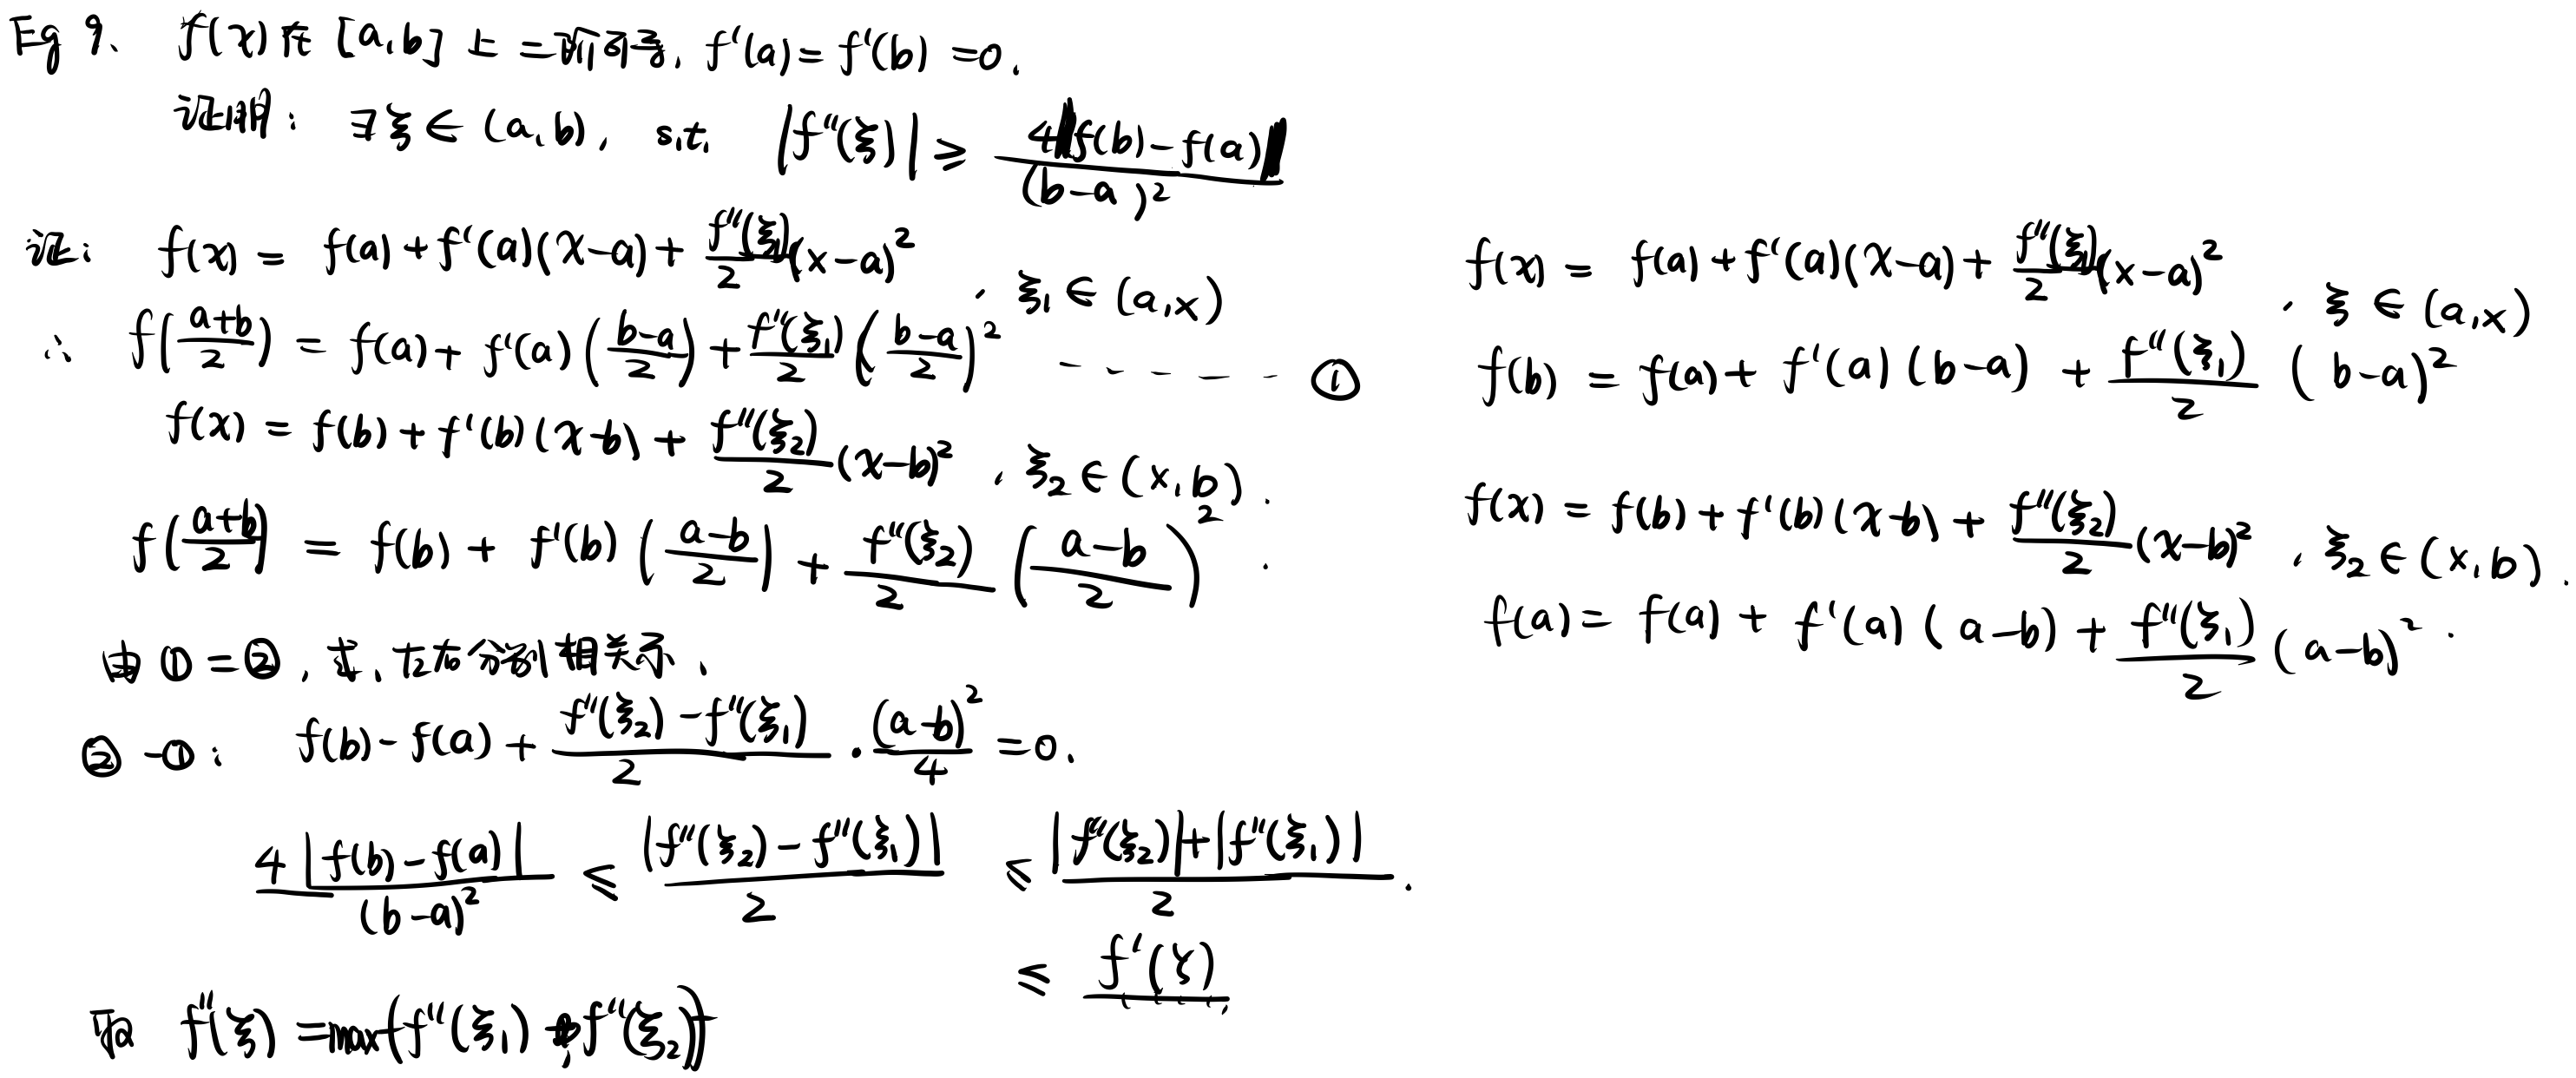 Eg 9、 f(x) 在 [a,b] 上 二阶可导, f'(a) = f'(b) = 0.
证明: ∃ξ ∈ (a,b), s.t. |f''(ξ)| ≥ 4|f(b)-f(a)| / (b-a)²
证: f(x) = f(a) + f'(a)(x-a) + f''(ξ₁)/2 (x-a)², ξ₁ ∈ (a,x)
∴ f((a+b)/2) = f(a) + f'(a)((b-a)/2) + f''(ξ₁)/2 ((b-a)/2)² ----- ①
f(x) = f(b) + f'(b)(x-b) + f''(ξ₂)/2 (x-b)², ξ₂ ∈ (x,b).
f((a+b)/2) = f(b) + f'(b)((a-b)/2) + f''(ξ₂)/2 ((a-b)/2)².
由 ① = ②, 左右分别相关示、
② - ①: f(b) - f(a) + (f''(ξ₂) - f''(ξ₁))/2 · (a-b)²/4 = 0.
4|f(b)-f(a)| / (b-a)² ≤ |f''(ξ₂) - f''(ξ₁)| / 2 ≤ (|f''(ξ₂)| + |f''(ξ₁)|) / 2.
≤ f'(ξ)
取 f''(ξ) = max(f''(ξ₁), f''(ξ₂))
f(x) = f(a) + f'(a)(x-a) + f''(ξ₁)/2 (x-a)², ξ ∈ (a,x)
f(b) = f(a) + f'(a)(b-a) + f''(ξ₁)/2 (b-a)²
f(x) = f(b) + f'(b)(x-b) + f''(ξ₂)/2 (x-b)², ξ₂ ∈ (x,b).
f(a) = f(a) + f'(a)(a-b) + f''(ξ₁)/2 (a-b)².